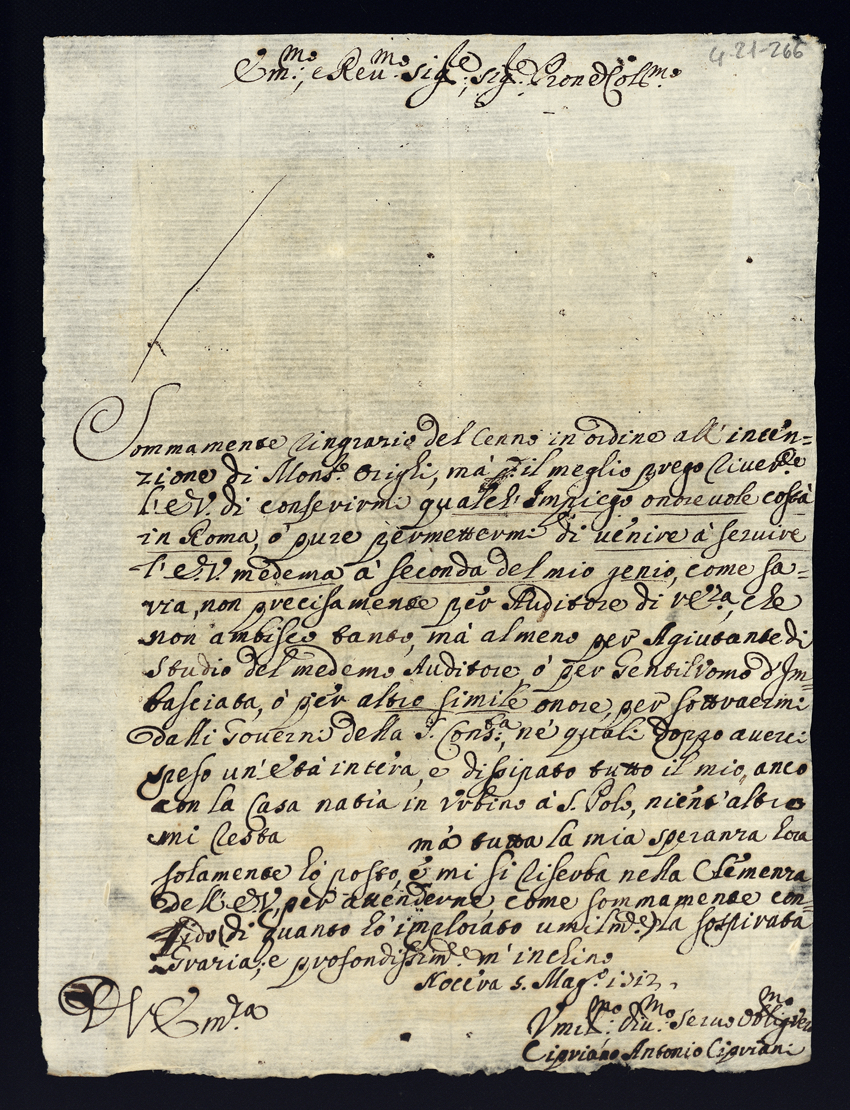 4-21-266
Em.mo, e Reu.mo Sig.re, Sig.re Prone Col.mo
Sommamente ringrazio del Cenno in ordine all' inten=
zione di Mons.r Orighi, mà p. il meglio prego river.te
l' E.V. di conferirmi qualch' Impiego onoreuole costà
in Roma, ò pure permettermi di uenire à seruire
l' E.V. medema à seconda del mio genio, come sa=
ria, non precisamente per Auditore di che
non ambisco tanto, mà almeno per Agiutante di
studio del medemo Auditore, ò per Gentilromo d'Im=
basciata, ò per altro simile onore, per sottraermi
dalli Gouerni della S. Cons.ta, ne quali doppo auerci
speso un' età intera, e dissipato tutto il mio, anco
con la Casa natia in Vrbino à S. Polo, nient' altro
mi resta mà tutta la mia speranza hora
solamente hò posto, e mi si riserba nella Clemenza
dell' E.V., per attenderne come sommamente con=
fido (di quanto hò implorato umilm.te) la sospirata
Grazia; e profondissim.te m' inchino
Nocera 5. Mag.o 1712.
D V Em.za
Vmil.mo Diu.mo Seruo Oblig.mo
Cipriano Antonio Cipriani